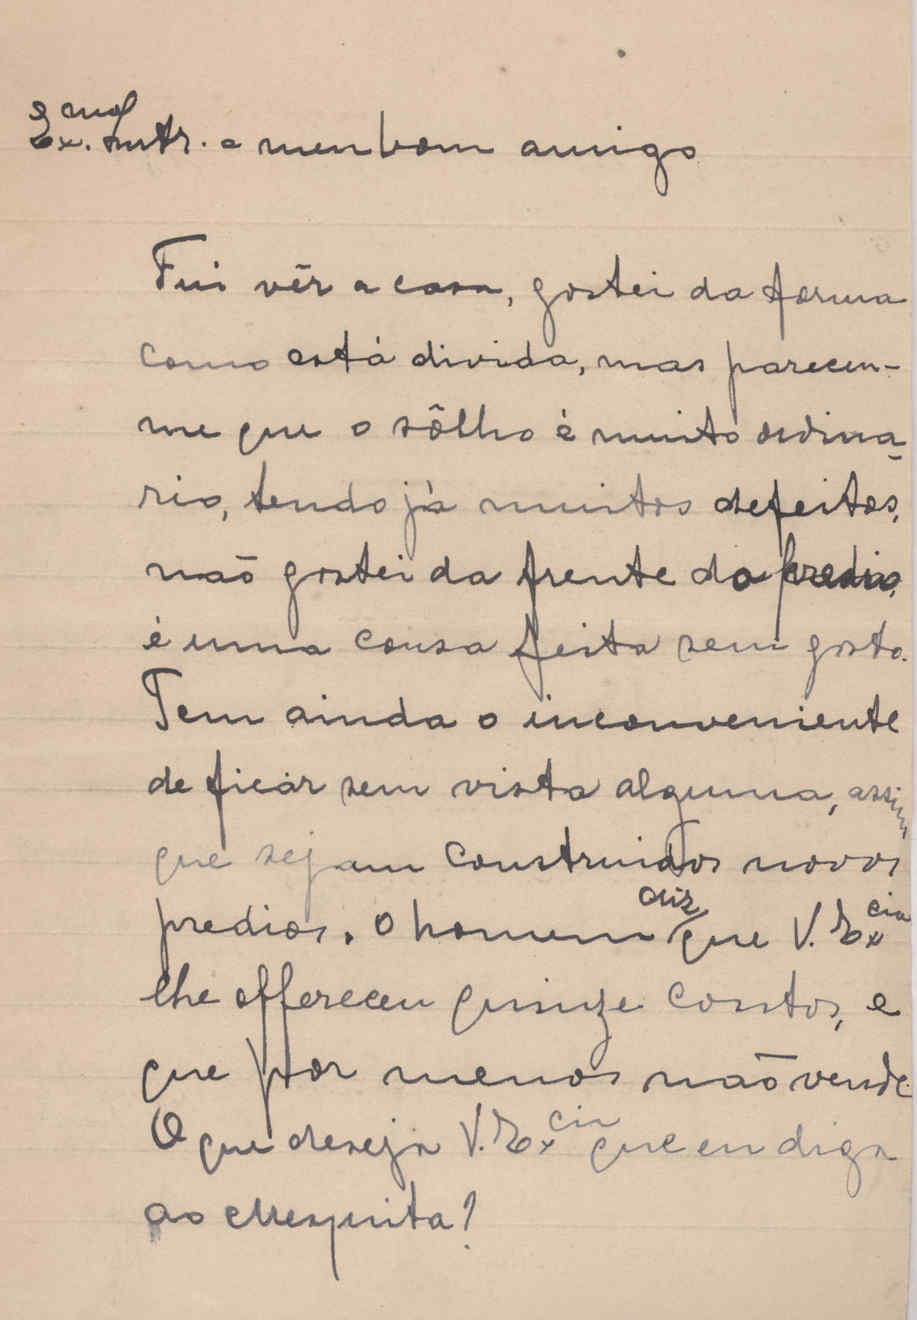 Exmo. Sr. e meu bom amigo
Fui vêr a casa, gostei da forma
como está divida, mas pareceu-
me que o sôlho é muito ordiná-
rio, tendo já muitos defeitos,
não gostei da frente do predio,
é uma cousa feita sem gosto.
Tem ainda o inconveniente
de ficár sem vista alguma, assim
que sejam construidos novos
predios. O homem diz que V. Excia
lhe offereceu quinze contos, e
que por menos não vende.
O que deseja V. Excia que eu diga
ao Mesquita?